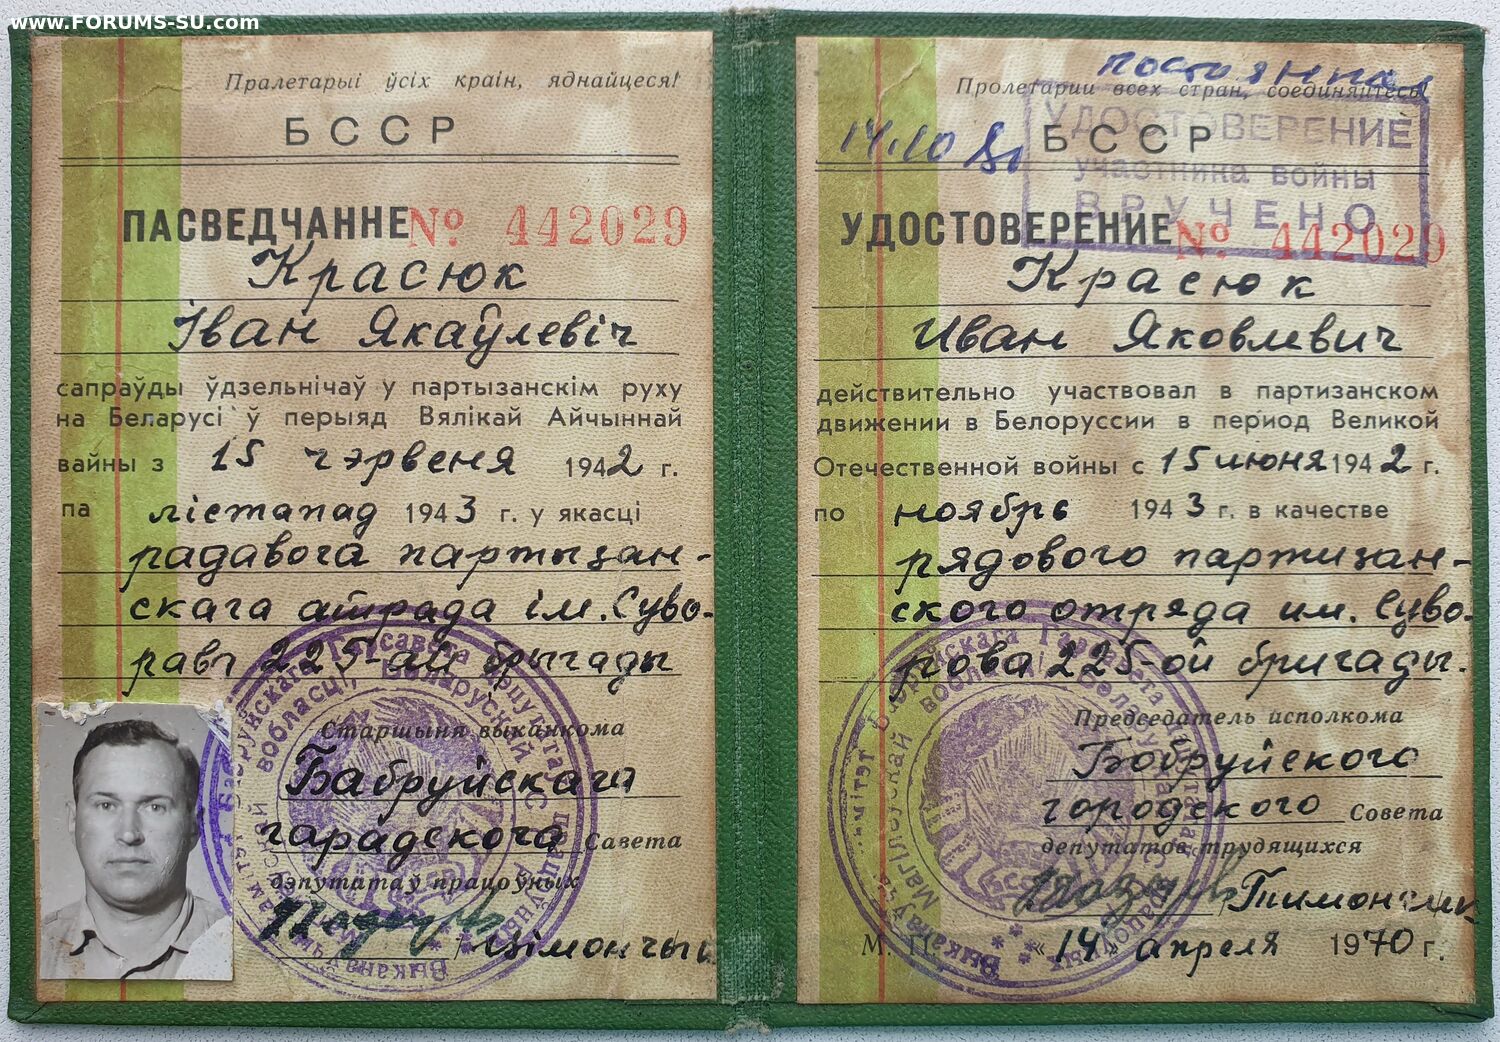 www.FORUMS-SU.com
Пралетарыі ўсіх краін, яднайцеся!
БССР
ПАСВЕДЧАННЕ № 442029
Красюк
Іван Якаўлевіч
сапраўды ўдзельнічаў у партызанскім руху
на Беларусі ў перыяд Вялікай Айчыннай
вайны з 15 чэрвеня 1942 г.
па лістапад 1943 г. у якасці
радавога партызан-
скага атрада ім. Суво-
рава 225-ай брыгады
Старшыня выканкома
Бабруйскага
гарадскога Савета
дэпутатаў працоўных
Цімончык
постоянная
Пролетарии всех стран, соединяйтесь!
14.10
БССР
УДОСТОВЕРЕНИЕ
участника войны
ВРУЧЕНО
УДОСТОВЕРЕНИЕ № 442029
Красюк
Иван Яковлевич
действительно участвовал в партизанском
движении в Белоруссии в период Великой
Отечественной войны с 15 июня 1942 г.
по ноябрь 1943 г. в качестве
рядового партизан-
ского отряда им. Суво-
рова 225-ой бригады.
Председатель исполкома
Бобруйского
городского Совета
депутатов трудящихся
Тимончик
М. П. «14» апреля 1970 г.